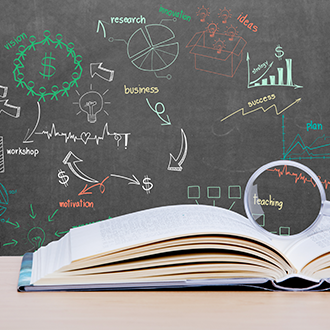 research
innovation
ideas
vision
$
$
strategy
business
success
plan
workshop
$
$
motivation
teaching